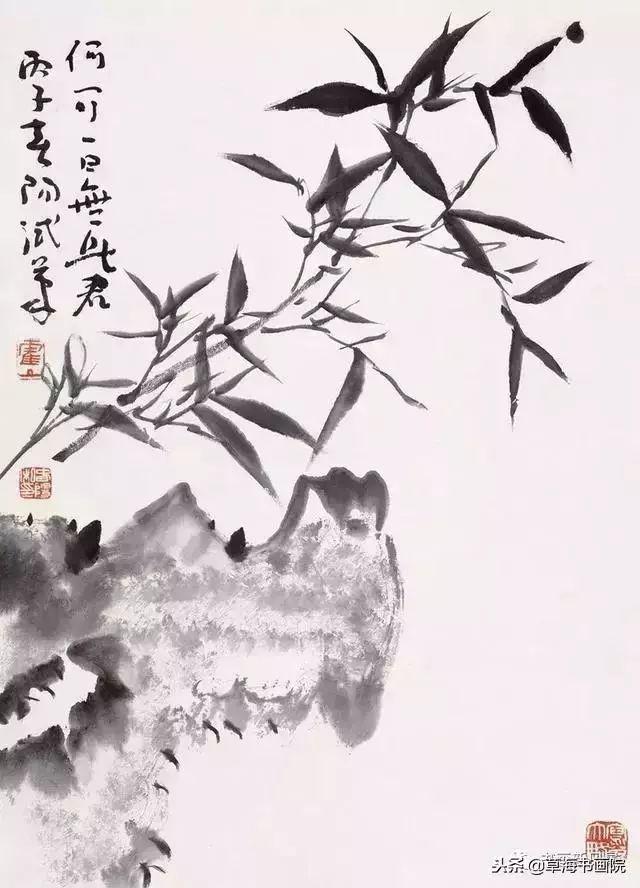 何可一日無此君
丙子春陽試筆
头条 @草海书画院